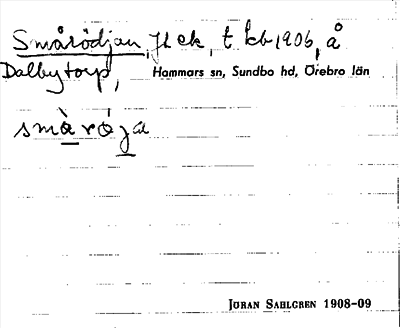 Smårödjan, fl ek, t. kb 1906, å
Dalbytorp, Hammars sn, Sundbo hd, Örebro län
småröja
JÖRAN SAHLGREN 1908-09